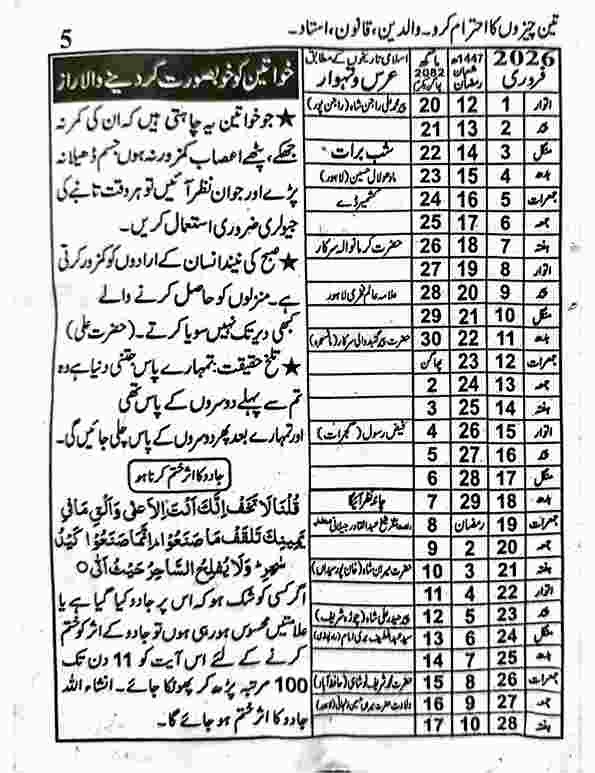 تین چیزوں کا احترام کرو۔ والدین، قانون، استاد۔
5
2026 فروری
1447ھ شعبان رمضان
2082
اسلامی تاریخوں کے مطابق عرس و تہوار
اتوار 1 12 20 پیر محمد علی راجن شاہ (راجن پور)
پیر 2 13 21
منگل 3 14 22 شب برات
بدھ 4 15 23 مادھو لال حسین (لاہور)
جمعرات 5 16 24 کشمیر ڈے
جمعہ 6 17 25
ہفتہ 7 18 26 حضرت کرمانوالہ سرکار
اتوار 8 19 27
پیر 9 20 28 علامہ عالم فقری لاہور
منگل 10 21 29
بدھ 11 22 30 حضرت پیر گنبد والی سرکار (مانسہرہ)
جمعرات 12 23 پھاگن
جمعہ 13 24 2
ہفتہ 14 25 3
اتوار 15 26 4 فیض رسول (گجرات)
پیر 16 27 5
منگل 17 28 6
بدھ 18 29 7 چاند نظر آئیگا
جمعرات 19 رمضان 8 شیخ عبدالقادر جیلانی
جمعہ 20 2 9
ہفتہ 21 3 10 حضرت میراں شاہ (خان پور سیداں)
اتوار 22 4 11
پیر 23 5 12 پیر حیدر علی شاہ (چورہ شریف)
منگل 24 6 13 سید عبداللطیف بری امام
بدھ 25 7 14
جمعرات 26 8 15 حضرت محمد شریف نوشاہی (حافظ آباد)
جمعہ 27 9 16 ولادت حضرت (لاہور)
ہفتہ 28 10 17
خواتین کو خوبصورت کر دینے والا راز
★ جو خواتین یہ چاہتی ہیں کہ ان کی کمر نہ
جھکے، پٹھے اعصاب کمزور نہ ہوں جسم ڈھیلا نہ
پڑے اور جوان نظر آئیں تو ہر وقت تانبے کی
جیولری ضروری استعمال کریں۔
★ صبح کی نیند انسان کے ارادوں کو کمزور کرتی
ہے۔ منزلوں کو حاصل کرنے والے
کبھی دیر تک نہیں سویا کرتے۔ (حضرت علی)
★ تلخ حقیقت: تمہارے پاس جتنی دنیا ہے وہ
تم سے پہلے دوسروں کے پاس تھی
اور تمہارے بعد پھر دوسروں کے پاس چلی جائیں گی۔
جادو کا اثر ختم کرنا ہو
قُلْنَا لَا تَخَفْ اِنَّكَ اَنْتَ الْاَعْلٰی وَاَلْقِ مَا فِیْ
یَمِیْنِكَ تَلْقَفْ مَا صَنَعُوْا اِنَّمَا صَنَعُوْا كَیْدُ
سٰحِرٍ وَلَا یُفْلِحُ السَّاحِرُ حَیْثُ اَتٰی
اگر کسی کو شک ہو کہ اس پر جادو کیا گیا ہے یا
علامتیں محسوس ہو رہی ہوں تو جادو کے اثر کو ختم
کرنے کے لئے اس آیت کو 11 دن تک
100 مرتبہ پڑھ کر پھونکا جائے۔ انشاء اللہ
جادو کا اثر ختم ہو جائے گا۔